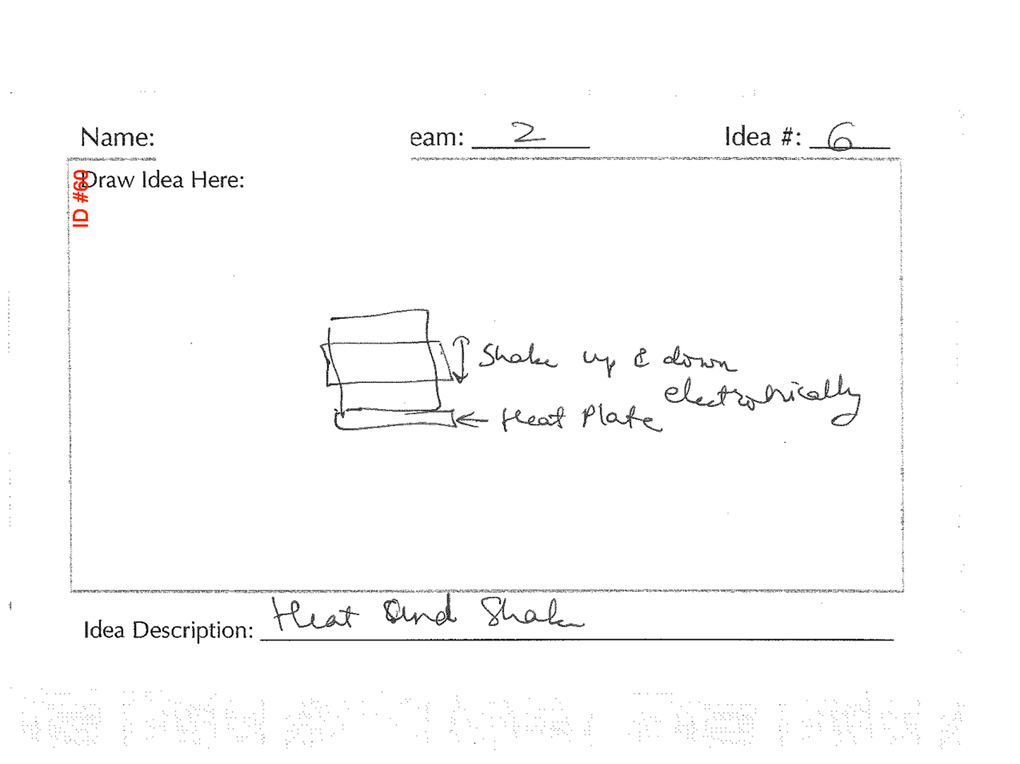 Name: eam: 2 Idea #: 6
ID #69
Draw Idea Here:
Shake up & down
electrohically
← Heat Plate
Idea Description: Heat and Shake